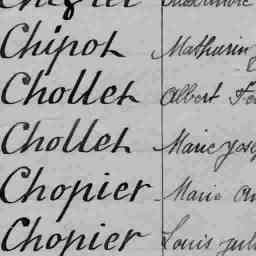 Chipot Mathurin
Chollet Albert
Chollet Marie
Chopier Marie
Chopier Louis